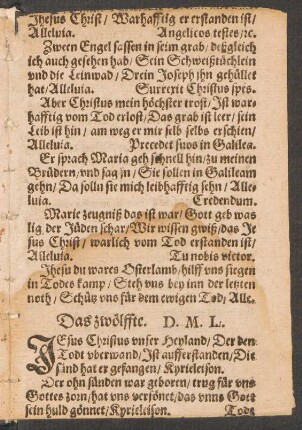 Jhesus Christ/ Warhafftig er erstanden ist/
Alleluia. Angelicos testes/ ꝛc.
Zween Engel sassen in seim grab/ deßgleich
ich auch gesehen hab/ Sein Schweißtüchlein
vnd die Leinwad/ Drein Joseph jhn gehüllet
hat/ Alleluia. Surrexit Christus spes.
Aber Christus mein höchster trost/ Ist war-
hafftig vom Tod erlost/ Das grab ist leer/ sein
Leib ist hin/ am weg er mir selb selbs erschien/
Alleluia. Precedet suos in Galilea.
Er sprach Maria geh schnell hin/ zu meinen
Brüdern/ vnd sag jn/ Sie sollen in Galileam
gehn/ Da solln sie mich leibhafftig sehn/ Alle-
luia. Credendum.
Marie zeugniß das ist war/ Gott geb was
lig der Jüden schar/ Wir wissen gwiß/ das Je-
sus Christ/ warlich vom Tod erstanden ist/
Alleluia. Tu nobis victor.
Jhesu du wares Osterlamb/ hilff vns siegen
in Todes kampf/ Steh vns bey inn der letzten
noth/ Schütz vns für dem ewigen Tod/ Alle.
Das zwölffte. D. M. L.
JEsus Christus vnser Heyland/ Der den
Todt vberwand/ Ist aufferstanden/ Die
sünd hat er gefangen/ Kyrieleison.
Der ohn sünden war geboren/ trug für vns
Gottes zorn/ hat vns versönet/ das vnns Gott
sein huld gönnet/ Kyrieleison. Todt